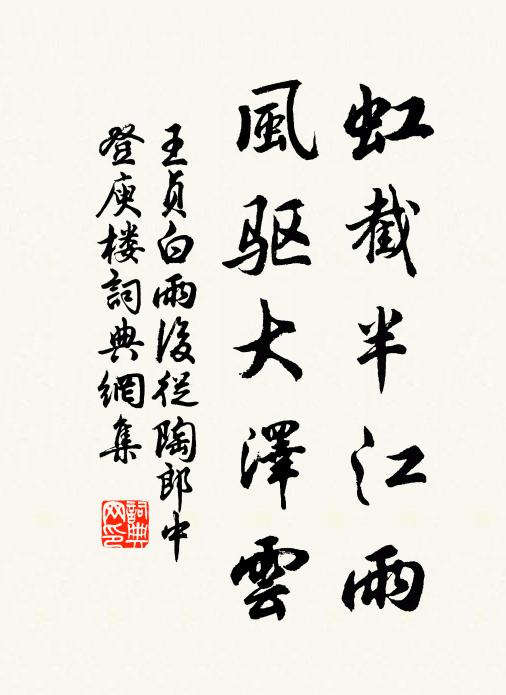 虹截半江雨
風驱大澤雲
王貞白雨後從陶郎中
登庾楼詞典網集
詞典
网印